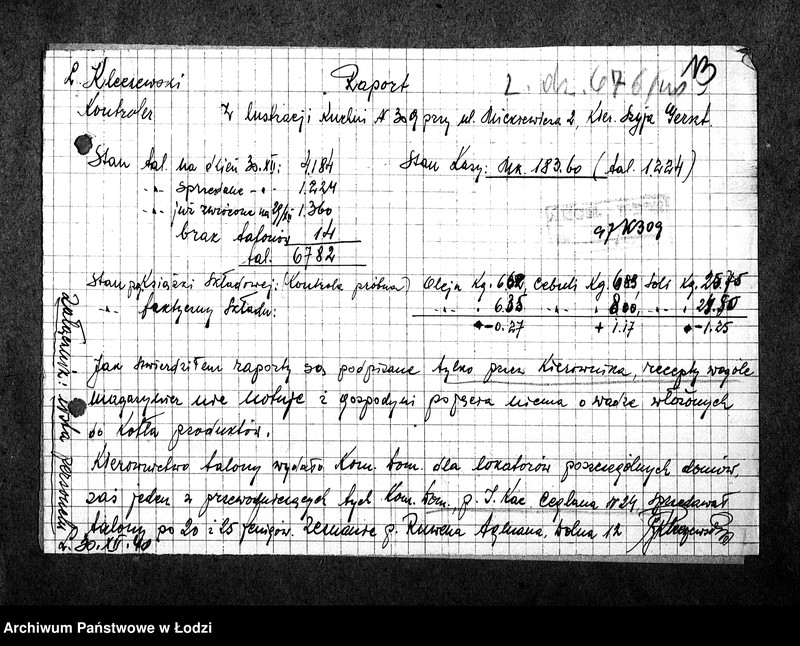 Ł. Kleczewski
Raport
L. dz. 676
13
Kontroler
Z lustracji Kuchni N 309 przy ul. Mickiewicza 2, Kier. Szyja Gerszt.
Stan tal. na dzień 30.XII: 4.184
Stan Kasy: Mk. 183.60 (tal. 1224)
-"- sprzedane -"- 1.224
-"- już zwrócone na 29/XII 1.360
brak talonów 14
tal. 6782
97/K309
Stan pg Książki Składowej: (Kontrola próbna) Oleju Kg. 6.62, Cebuli Kg. 6.83, Soli Kg. 25.75
-"- faktyczny Składu: 6.35 -"- 8.00, -"- 24.50
-0.27 + 1.17 -1.25
Jak stwierdziłem raporty są podpisane tylko przez Kierownika, recepty wogóle
magazynier nie notuje i gospodyni pojęcia niema o wadze włożonych
do kotła produktów.
Kierownictwo talony wydało Kom. Dom. dla lokatorów poszczególnych domów,
zaś jeden z przewodniczących tych Kom. Dom., p. I. Kac. Ceglana N 24, sprzedawał
talony po 20 i 25 fenigów. Zeznanie p. Ruwena Ajzmana, Wolna 12
Ł. 30.XII.40
Załącznik: lista personelu
Archiwum Państwowe w Łodzi